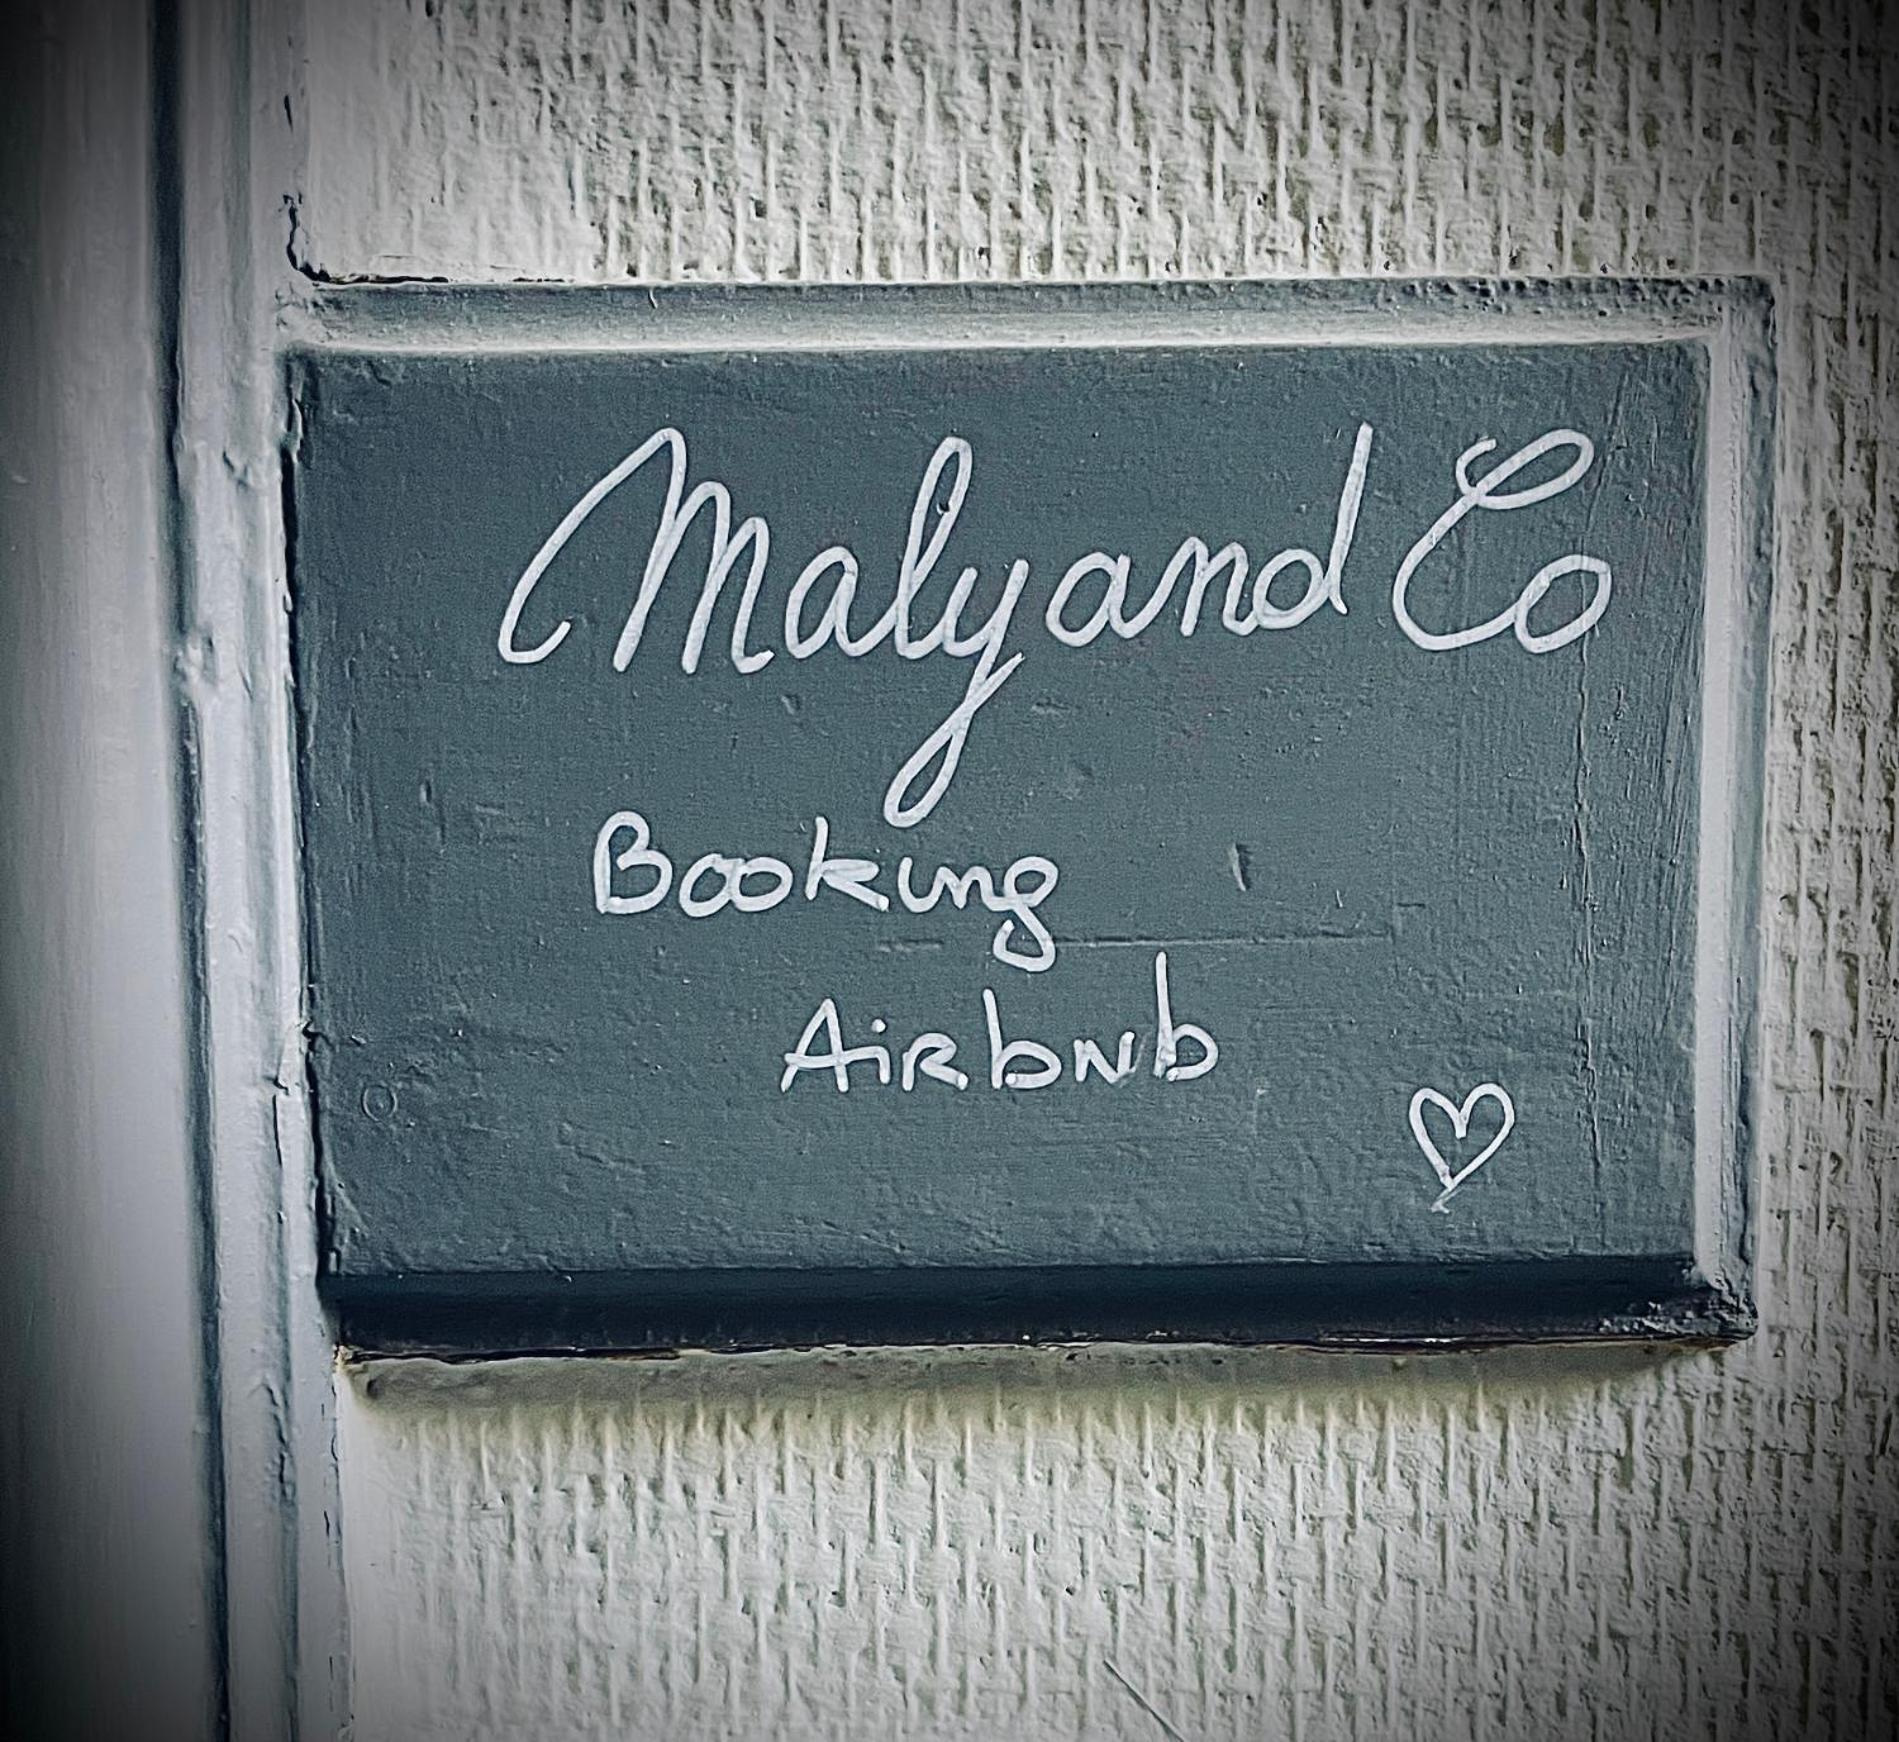 Maly and Co
Booking
Airbnb